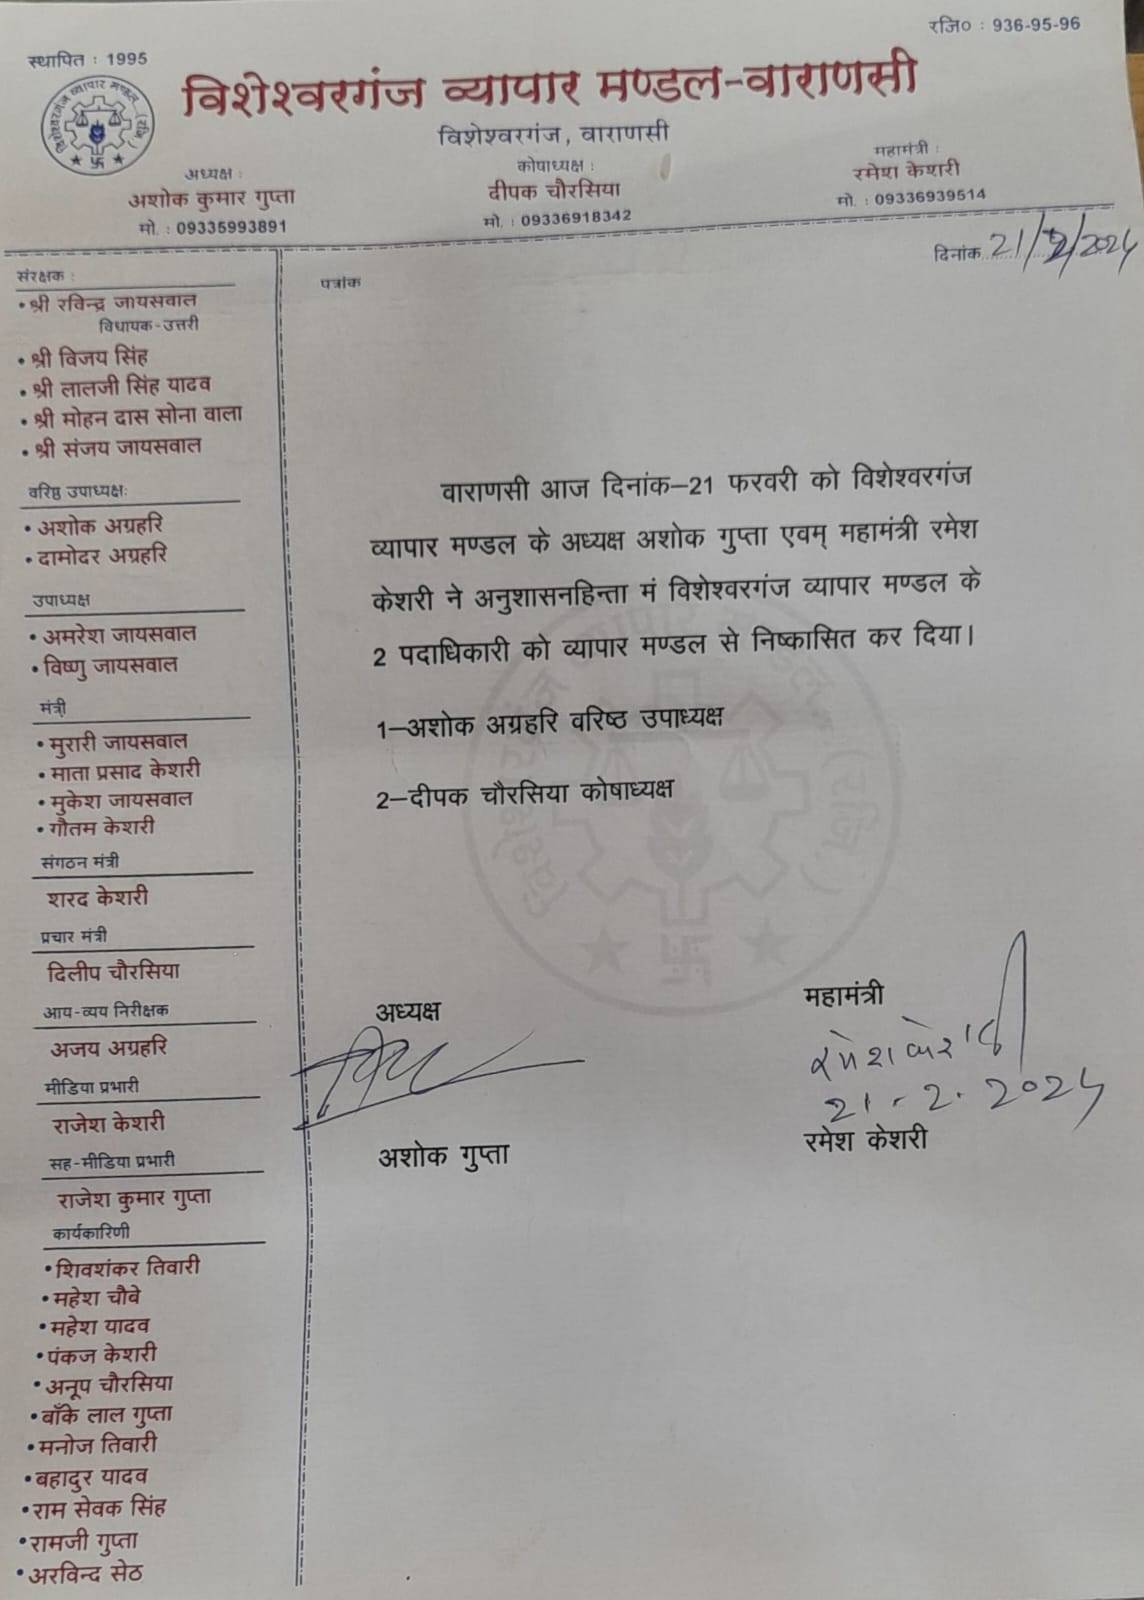 रजि० : 936-95-96
स्थापित : 1995
विशेश्वरगंज व्यापार मण्डल (रजि.)
विशेश्वरगंज व्यापार मण्डल-वाराणसी
विशेश्वरगंज, वाराणसी
अध्यक्ष :
अशोक कुमार गुप्ता
मो. : 09335993891
कोपाध्यक्ष :
दीपक चौरसिया
मो. : 09336918342
महामंत्री :
रमेश केशरी
मो. : 09336939514
दिनांक 21/2/2024
पत्रांक
संरक्षक :
• श्री रविन्द्र जायसवाल
विधायक-उत्तरी
• श्री विजय सिंह
• श्री लालजी सिंह यादव
• श्री मोहन दास सोना वाला
• श्री संजय जायसवाल
वरिष्ठ उपाध्यक्षः
• अशोक अग्रहरि
• दामोदर अग्रहरि
उपाध्यक्ष
• अमरेश जायसवाल
• विष्णु जायसवाल
मंत्री
• मुरारी जायसवाल
• माता प्रसाद केशरी
• मुकेश जायसवाल
• गौतम केशरी
संगठन मंत्री
शरद केशरी
प्रचार मंत्री
दिलीप चौरसिया
आय-व्यय निरीक्षक
अजय अग्रहरि
मीडिया प्रभारी
राजेश केशरी
सह-मीडिया प्रभारी
राजेश कुमार गुप्ता
कार्यकारिणी
• शिवशंकर तिवारी
• महेश चौबे
• महेश यादव
• पंकज केशरी
• अनूप चौरसिया
• बाँके लाल गुप्ता
• मनोज तिवारी
• बहादुर यादव
• राम सेवक सिंह
• रामजी गुप्ता
• अरविन्द सेठ
वाराणसी आज दिनांक–21 फरवरी को विशेश्वरगंज
व्यापार मण्डल के अध्यक्ष अशोक गुप्ता एवम् महामंत्री रमेश
केशरी ने अनुशासनहिन्ता मं विशेश्वरगंज व्यापार मण्डल के
2 पदाधिकारी को व्यापार मण्डल से निष्कासित कर दिया।
1–अशोक अग्रहरि वरिष्ठ उपाध्यक्ष
2–दीपक चौरसिया कोषाध्यक्ष
अध्यक्ष
अशोक गुप्ता
महामंत्री
रमेश केशरी
21.2.2024
रमेश केशरी